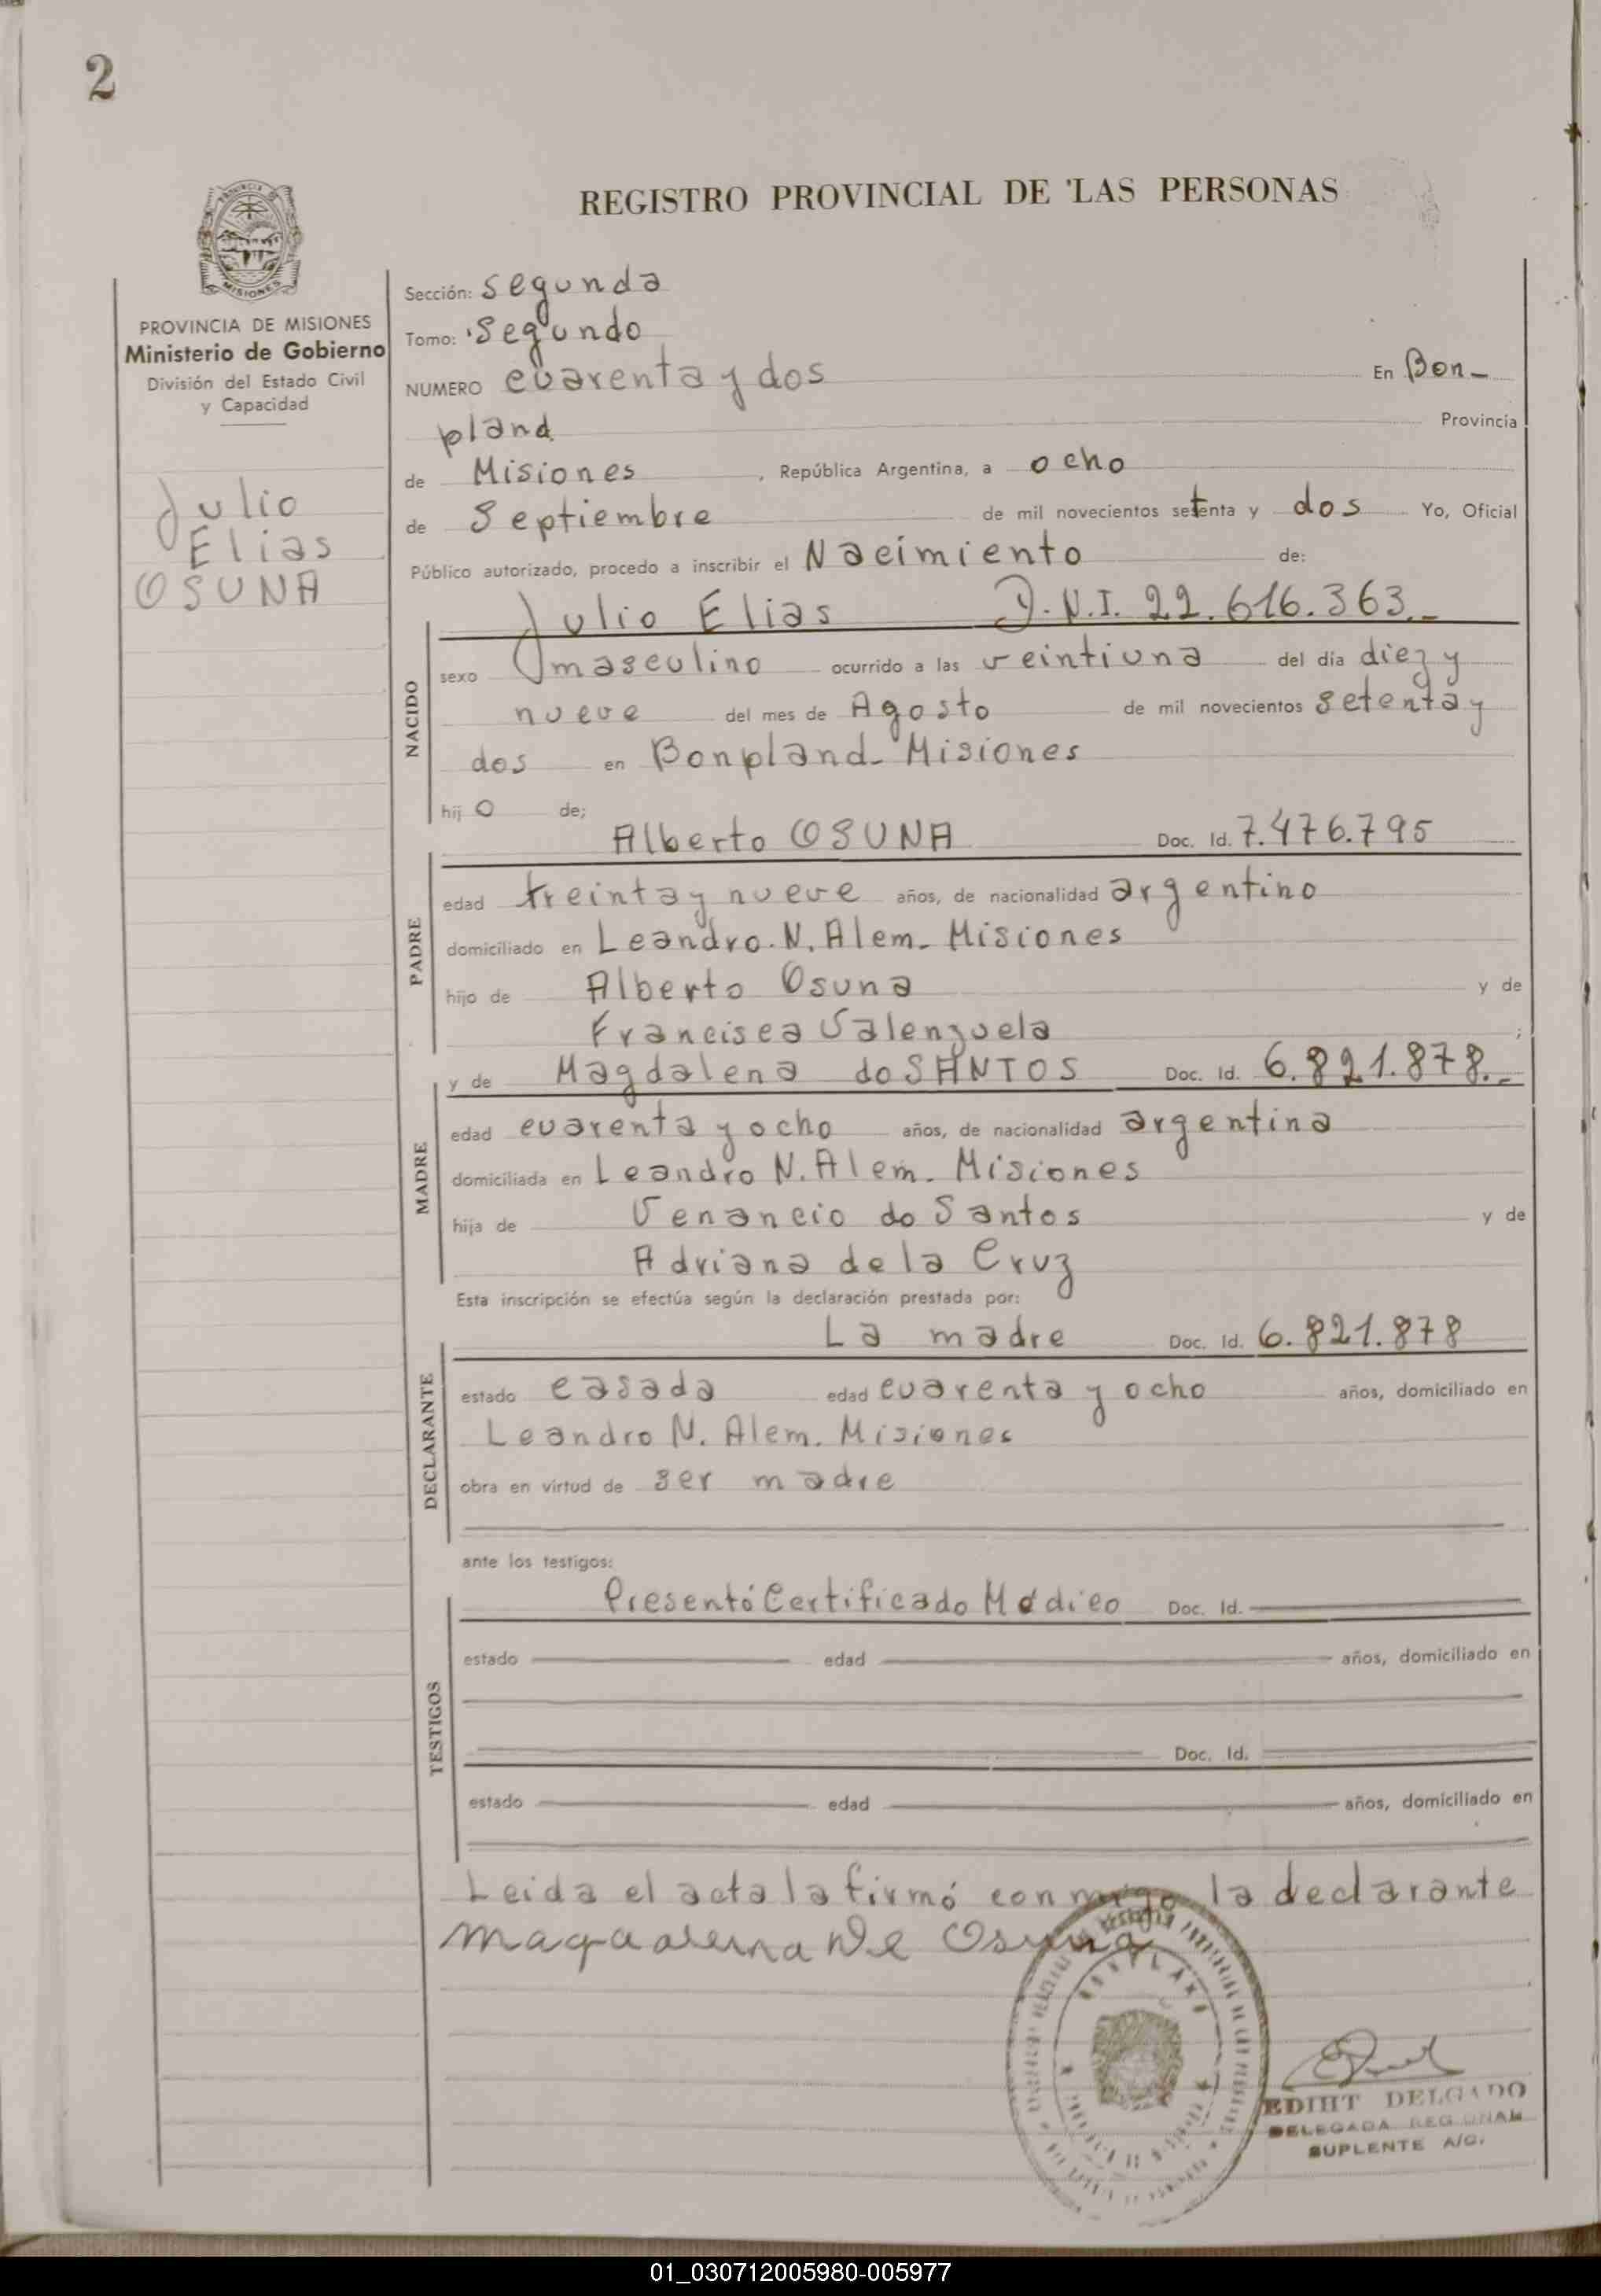 2
REGISTRO PROVINCIAL DE LAS PERSONAS
PROVINCIA DE MISIONES
Ministerio de Gobierno
División del Estado Civil
y Capacidad
Julio
Elias
OSUNA
Sección: segunda
Tomo: Segundo
NUMERO cuarenta y dos En Bon-
pland Provincia
de Misiones, República Argentina, a ocho
de Septiembre de mil novecientos setenta y dos Yo, Oficial
Público autorizado, procedo a inscribir el Nacimiento de:
NACIDO
Julio Elias D.N.I. 22.616.363.-
sexo masculino ocurrido a las veintiuna del día diez y
nueve del mes de Agosto de mil novecientos setenta y
dos en Bonpland-Misiones
hijo de;
PADRE
Alberto OSUNA Doc. Id. 7.476.795
edad treinta y nueve años, de nacionalidad argentino
domiciliado en Leandro.N.Alem-Misiones
hijo de Alberto Osuna y de
Francisca Valenzuela ;
MADRE
y de Magdalena do SANTOS Doc. Id. 6.821.878.-
edad cuarenta y ocho años, de nacionalidad argentina
domiciliada en Leandro N.Alem-Misiones
hija de Venancio do Santos y de
Adriana de la Cruz
Esta inscripción se efectúa según la declaración prestada por:
DECLARANTE
La madre Doc. Id. 6.821.878
estado casada edad cuarenta y ocho años, domiciliado en
Leandro N. Alem. Misiones
obra en virtud de ser madre
ante los testigos:
TESTIGOS
Presentó Certificado Médico Doc. Id.
estado edad años, domiciliado en
Doc. Id.
estado edad años, domiciliado en
Leida el acta la firmó conmigo la declarante
Magdalena De Osuna
BONPLAND
EDIHT DELGADO
DELEGADA REGIONAL
SUPLENTE A/C.
01_030712005980-005977